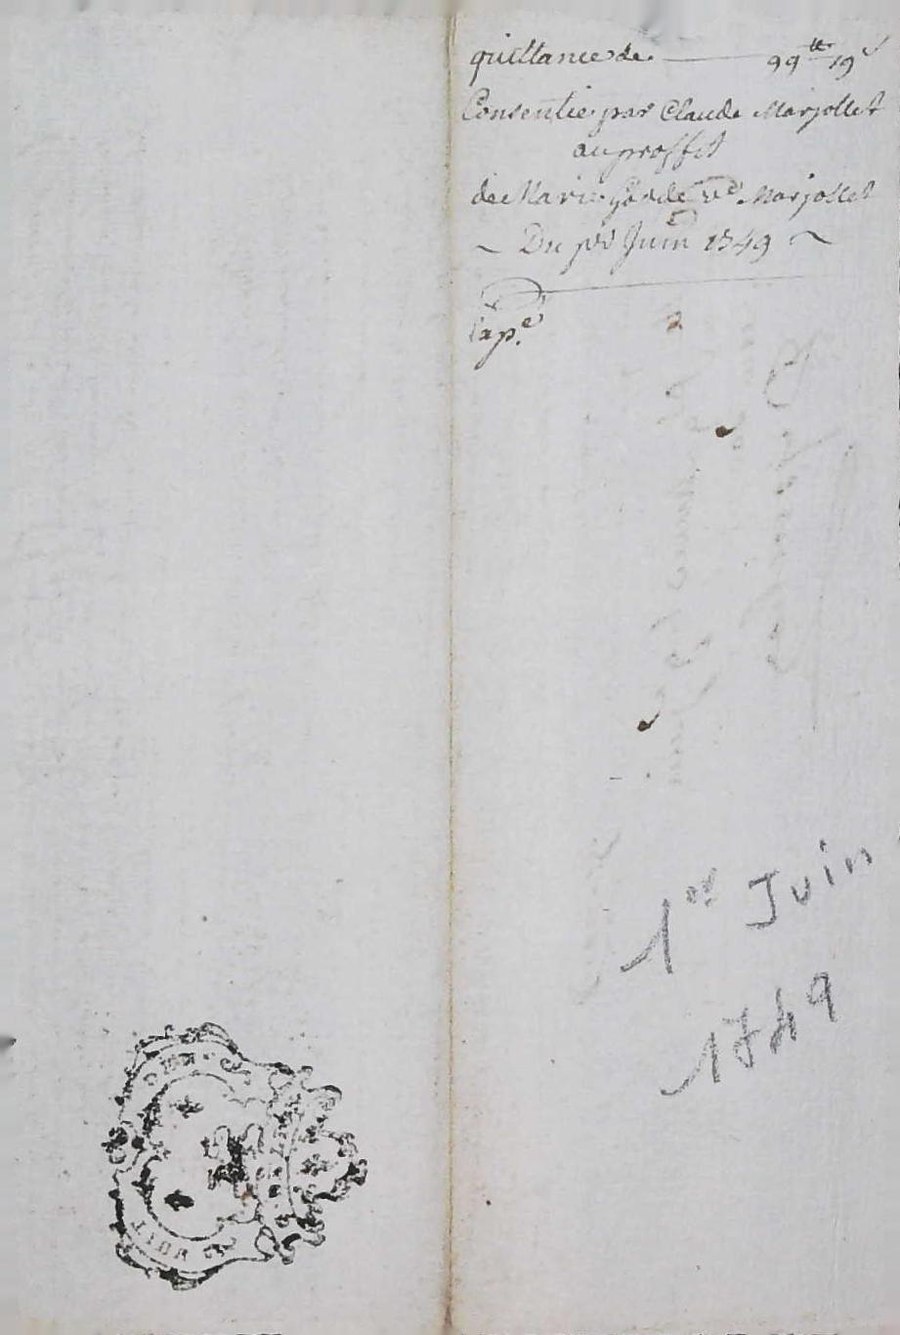 quittance de 99tt 19s
Consentie par Claude Marjollet
au proffit
de Marie Garde ve Marjollet
~ Du pr Juin 1749 ~
Expe
1er Juin
1749